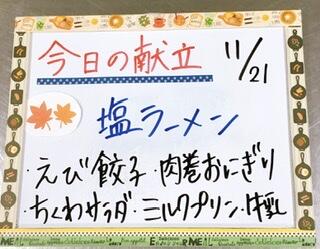 今日の献立
11/21
塩ラーメン
・えび餃子・肉巻おにぎり
・ちくわサラダ・ミルクプリン・牛乳